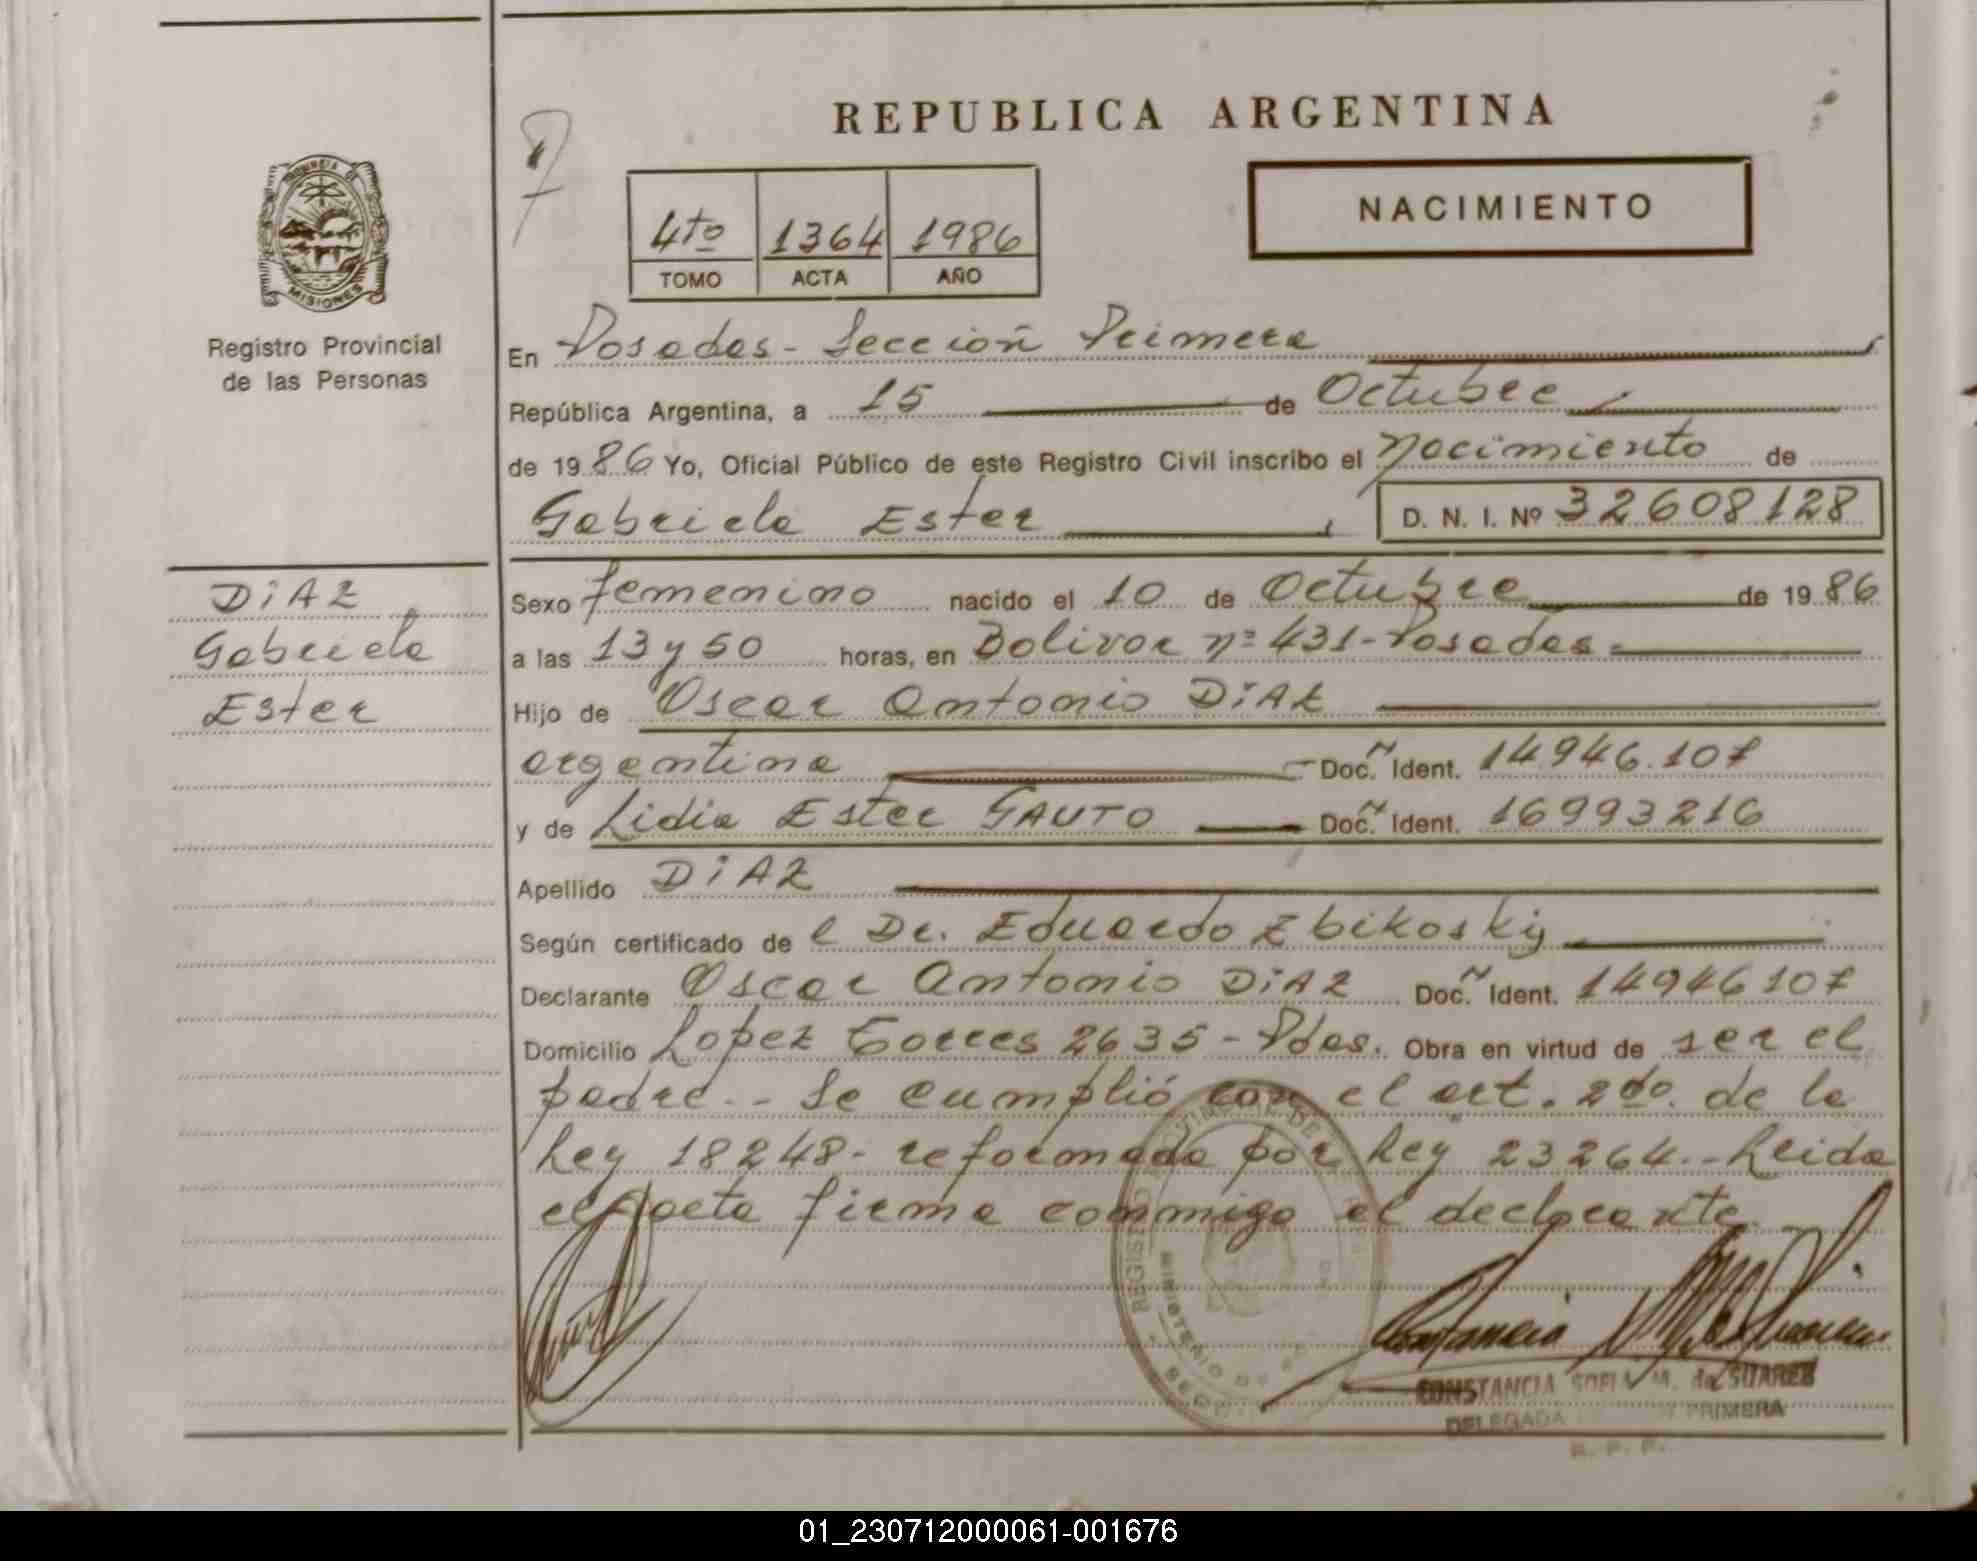 REPUBLICA ARGENTINA
PROVINCIA DE
MISIONES
Registro Provincial
de las Personas
4to 1364 1986
TOMO ACTA AÑO
NACIMIENTO
En Posadas - Sección Primera
República Argentina, a 15 de Octubre
de 1986 Yo, Oficial Público de este Registro Civil inscribo el nacimiento de
Gabriela Ester D. N. I. Nº 32608128
DiAZ
Gabriela
Ester
Sexo femenino nacido el 10 de Octubre de 1986
a las 13 y 50 horas, en Bolivar nº 431 - Posadas -
Hijo de Oscar Antonio DiAZ
argentina Doc. Ident. 14946.107
y de Lidia Ester GAUTO Doc. Ident. 16993216
Apellido DiAZ
Según certificado de l Dr. Eduardo Zbikoskij
Declarante Oscar Antonio DiAZ Doc. Ident. 14946107
Domicilio Lopez Torres 2635 - Pdas. Obra en virtud de ser el
padre.- Se cumplió con el art. 2do. de la
Ley 18248 - reformada por Ley 23264.- Leida
el acta firma conmigo el declarante.
REGISTRO PROVINCIAL DE
MINISTERIO DE
CONSTANCIA SOFIA M. de SUAREZ
DELEGADA PRIMERA
R. P. P.
01_230712000061-001676